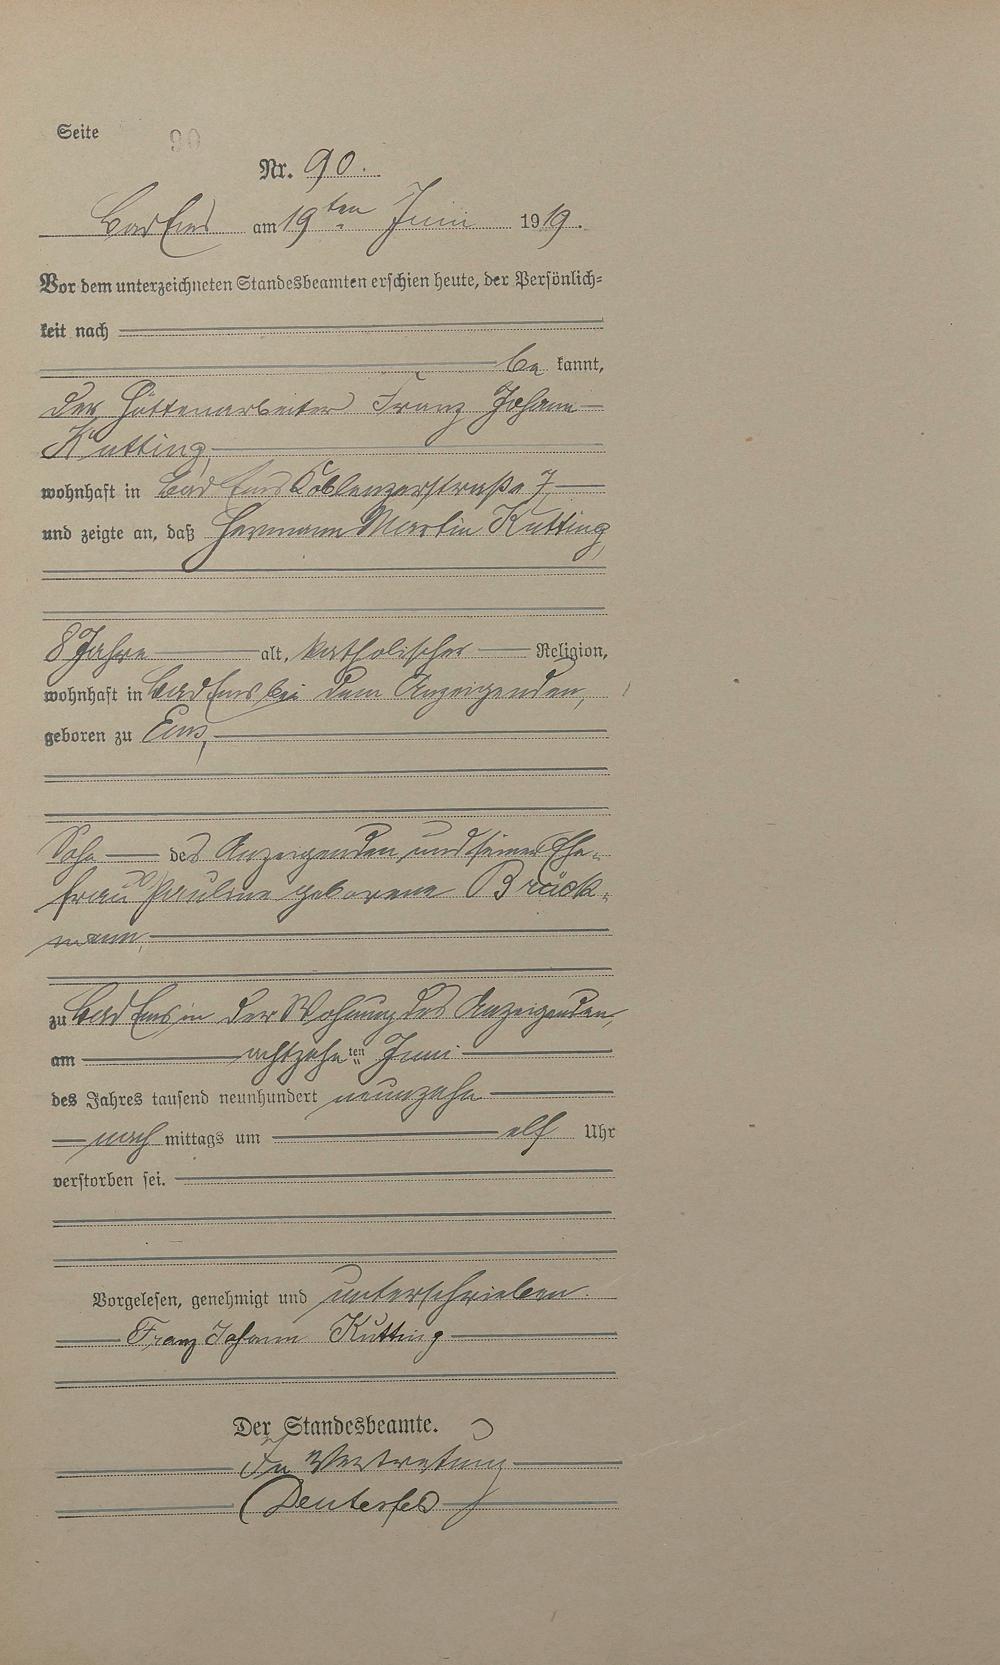 Seite 90
Nr. 90.
Bad Ems am 19ten Juni 1919.
Vor dem unterzeichneten Standesbeamten erschien heute, der Persönlich=
keit nach
be kannt,
der Hüttenarbeiter Franz Johann
Kutting,
wohnhaft in Bad Ems Coblenzerstraße 7,
und zeigte an, daß Hermann Martin Kutting,
8 Jahre alt, katholischer Religion,
wohnhaft in Bad Ems bei dem Anzeigenden,
geboren zu Ems,
Sohn des Anzeigenden und seiner Ehe-
frau Pauline geborene Brück-
mann,
zu Bad Ems in der Wohnung des Anzeigenden,
am achtzehnten Juni
des Jahres tausend neunhundert neunzehn
nach mittags um elf Uhr
verstorben sei.
Vorgelesen, genehmigt und unterschrieben.
Franz Johann Kutting
Der Standesbeamte.
In Vertretung